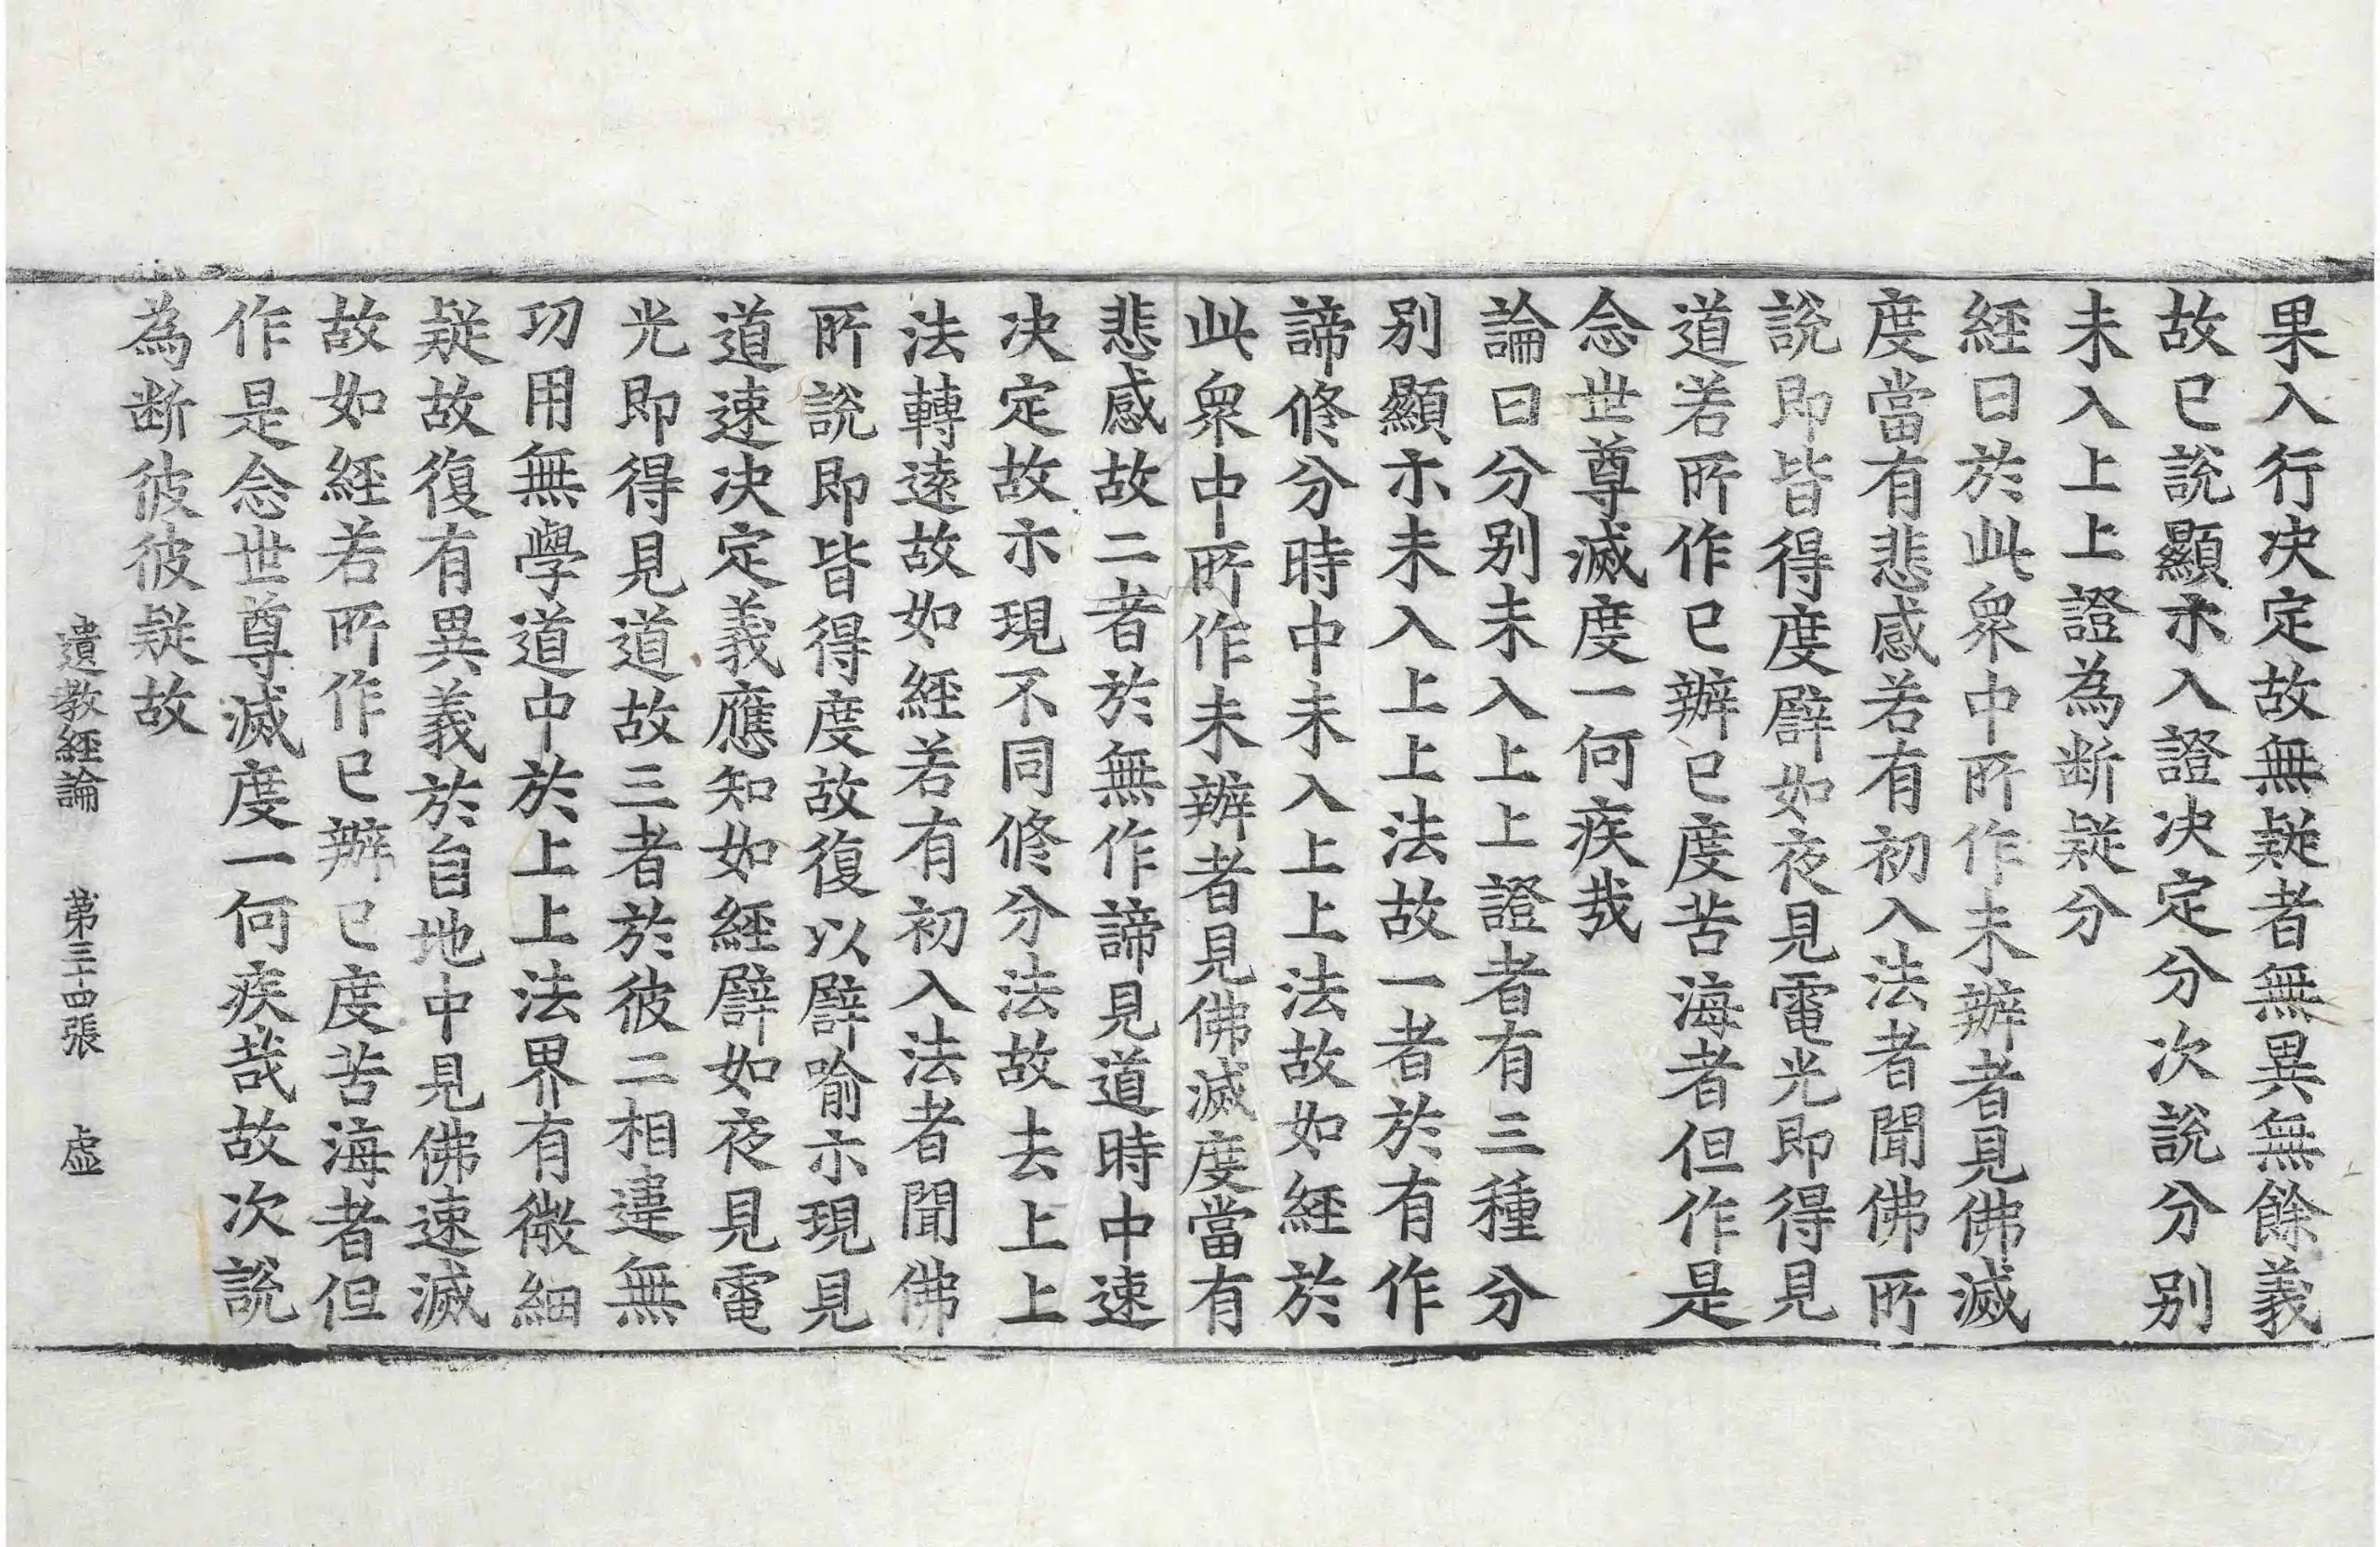 果入行决定故無疑者無異無餘義
故已說顯示入證决定分次說分别
未入上上證為断疑分
經曰於此衆中所作未辦者見佛滅
度當有悲感若有初入法者聞佛所
說即皆得度譬如夜見電光即得見
道若所作已辦已度苦海者但作是
念世尊滅度一何疾哉
論曰分别未入上上證者有三種分
别顯示未入上上法故一者於有作
諦修分時中未入上上法故如經於
此衆中所作未辦者見佛滅度當有
悲感故二者於無作諦見道時中速
决定故示現不同修分法故去上上
法轉遠故如經若有初入法者聞佛
所說即皆得度故復以譬喻示現見
道速决定義應知如經譬如夜見電
光即得見道故三者於彼二相違無
功用無學道中於上上法界有微細
疑故復有異義於自地中見佛速滅
故如經若所作已辦已度苦海者但
作是念世尊滅度一何疾哉故次說
為断彼彼疑故
遺教經論 第三十四張 虛